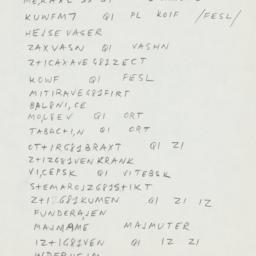 KUWFMT QI PL KOIF /FESL/
HEJSE VASER
ZAXVASN QI VASHN
Z+ICAXAVEG81ZECT
KOWF QI FESL
MITIRAVEG81FIRT
BALØNI,CE
MOLEEV QI ORT
TABACHI,N QI ORT
OT+IRG81BRAXT QI ZI
Z+IZG81VENKRANK
VI,CEPSK QI VITEBSK
STEMAROJZG81STIKT
Z+I G81KUMEN QI ZI IZ
FUNDERAJEN
MAJMAME MAJMUTER
IZ+IG81VEN QI IZ ZI